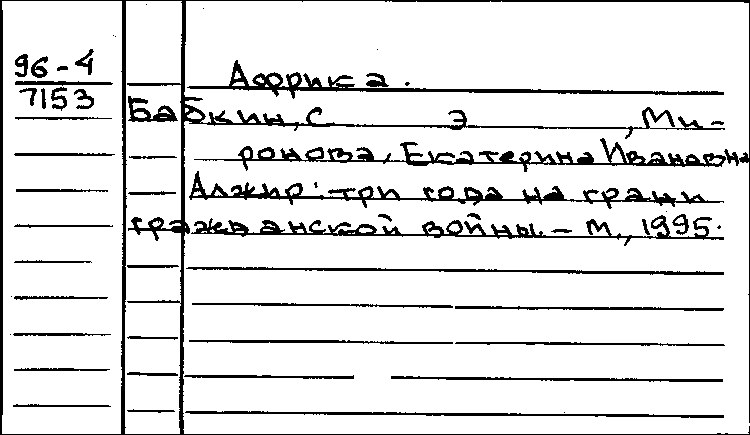 96-4
7153
Африка.
Бабкин, С Э , Ми-
ронова, Екатерина Ивановна
Алжир: три года на грани
гражданской войны. - М., 1995.